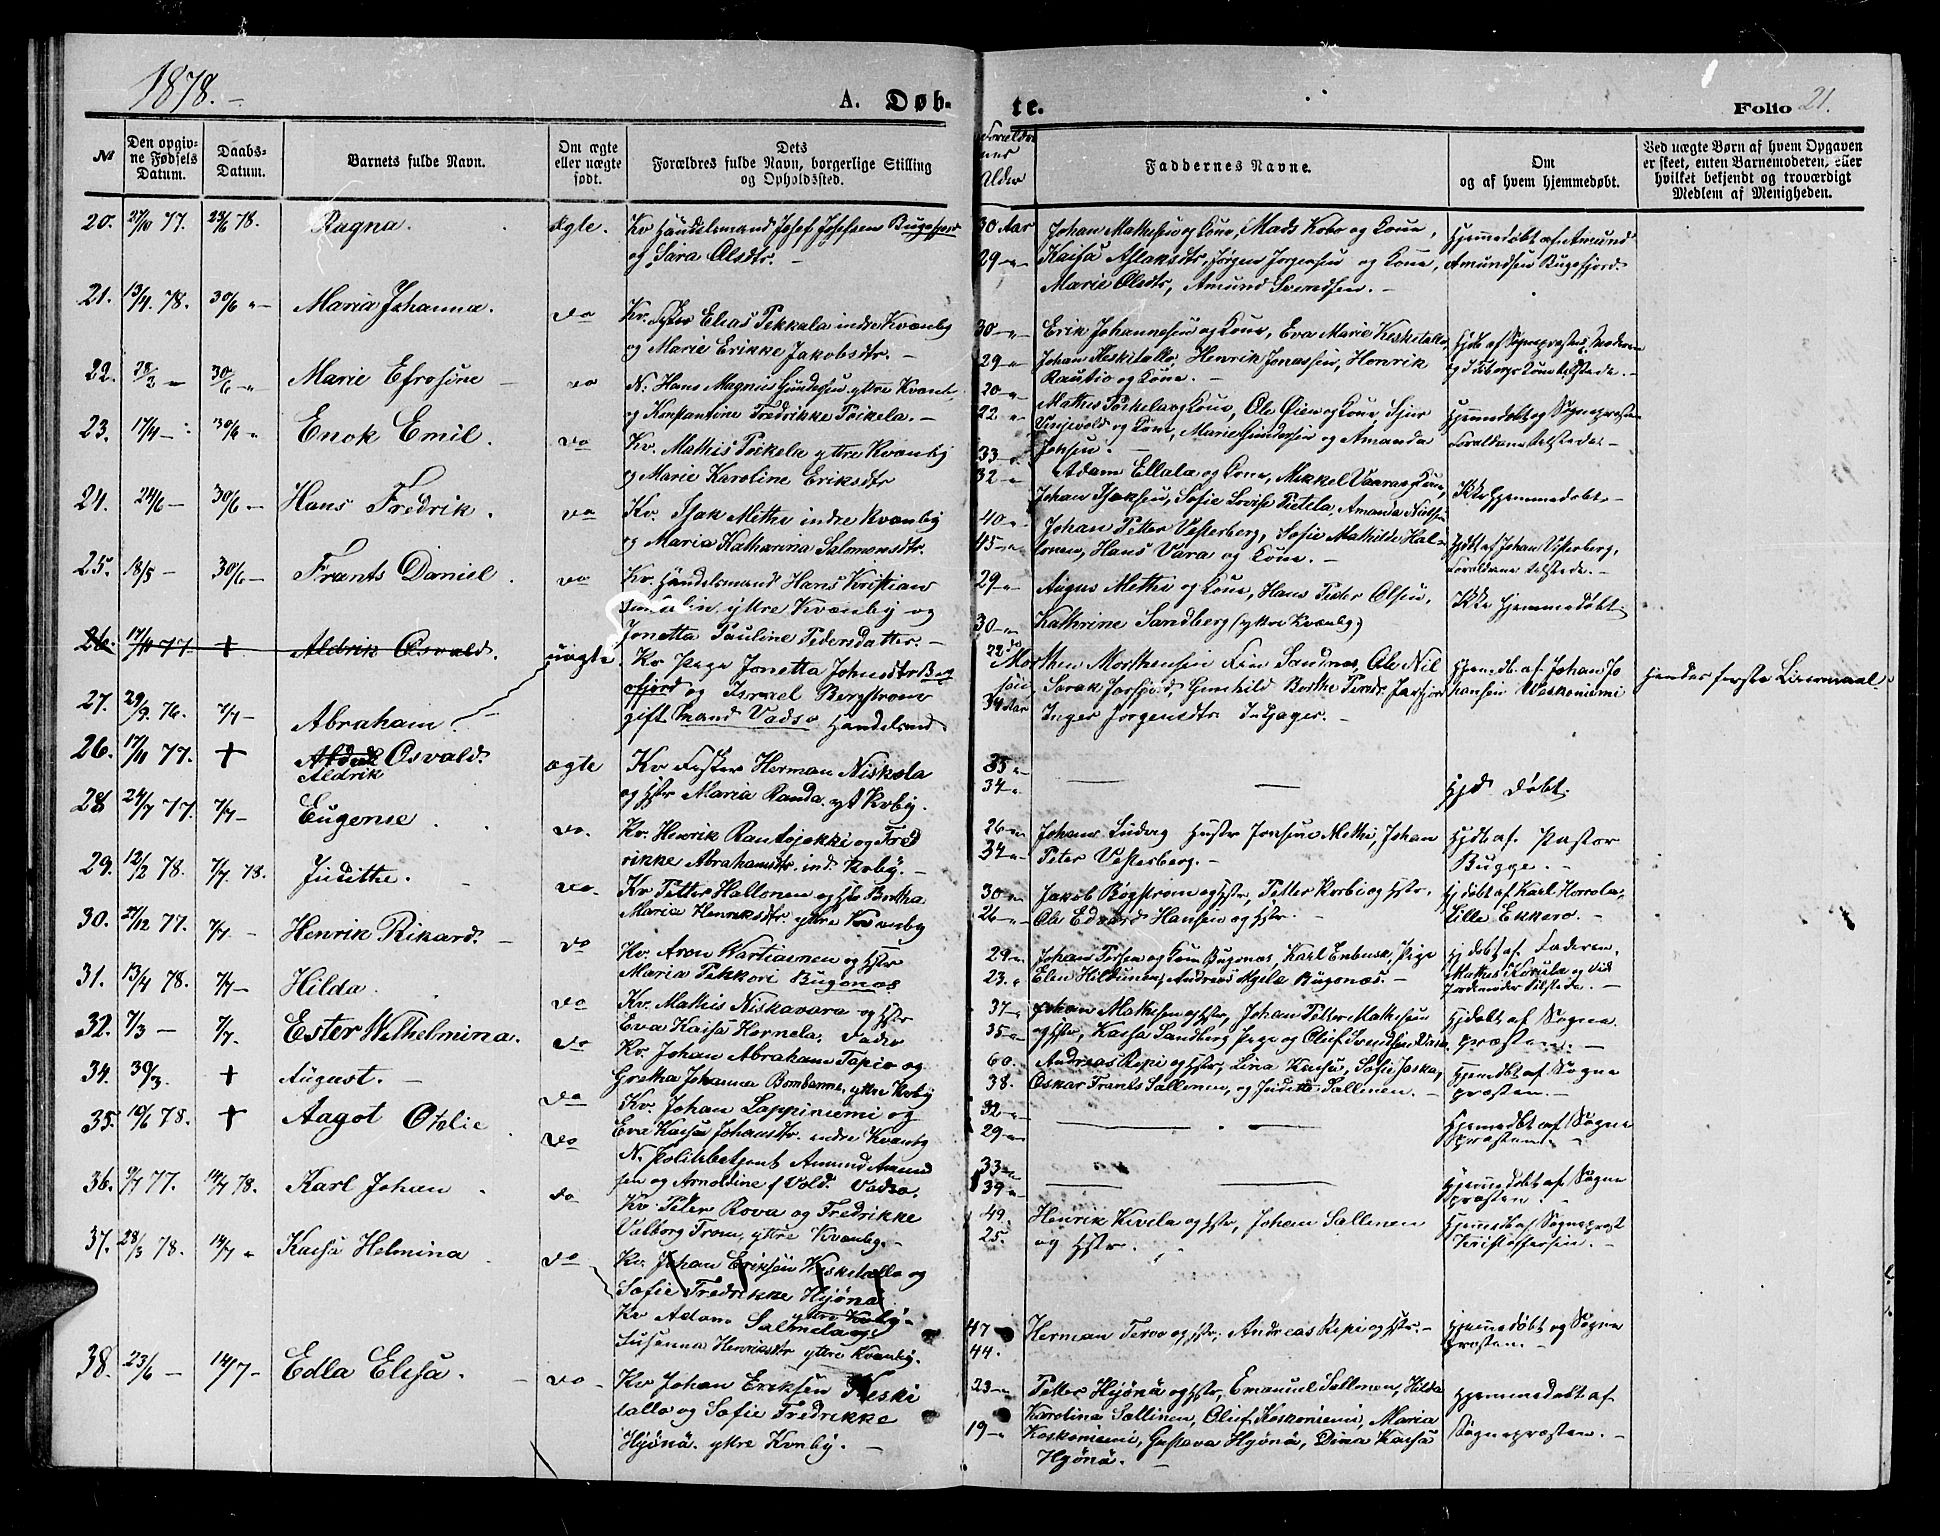 1878.
A. Døb-
te.
Folio 21.
№
Den opgiv-
ne Fødsels
Datum.
Daabs-
Datum.
Barnets fulde Navn.
Om ægte
eller uægte
født.
Dets
Forældres fulde Navn, borgerlige Stilling
og Opholdssted.
Forældre
nes
Alder
Faddernes Navne.
Om
og af hvem hjemmedøbt.
Ved uægte Børn af hvem Opgaven
er skeet, enten Barnemoderen, eller
hvilket bekjendt og troværdigt
Medlem af Menigheden.
20. 27/10 77. 23/6 78. Ragna. Ægte.
Kv Handelsmand Josef Josefsen Bugøfjord
og Sara Olsdtr.
30 Aar
29 - "
Johan Mathisen og Kone, Mads Kobo og Kone,
Kaisa Aslaksdtr, Jørgen Jørgensen og Kone,
Marie Olsdtr, Amund Svendsen. -
Hjemmedøbt af Amund
Amundsen Bugøfjord.
21. 13/4 78. 30/6 " - Maria Johanna. do
Kv. Fisker Elias Pekkala indre Kvænby
og Marie Erikke Jakobsdtr. -
30 - "
29 - "
Erik Johannesen og Kone, Eva Marie Keskitallo,
Johan Keskitallo, Henrik Jonassen, Henrik
Rautio og Kone. -
22. 28/3 - 30/6 - " Marie Efrosine - do
N. Hans Magnus Gundersen yttre Kvænb
og Konstantine Fredrikke Poikela. -
20 - "
22 - "
Mathis Poikela og Kone, Ole Øien og Kone, Sjur
Vinjevold og Kone, Marie Gundersen og Amanda
Johsen. -
Hjemmedøbt og Sognepresten
Forældrene tilstede. -
23. 17/4 - 30/6 " Enok Emil. do
Kv. Mathis Poikela yttre Kvænby
og Marie Karoline Eriksdtr
33 - "
32 - "
Adam Ellala og Kone, Mikkel Vaara og Kone,
Johan Isaksen, Sofie Lovise Pietila, Amanda Nielsen
Ikke Hjemmedøbt -
24. 24/6 - 30/6 - Hans Fredrik. do
Kv. Isak Methi indre Kvænby
og Maria Katharina Salomonsdtr.
40 - "
45 - "
Johan Petter Vesterberg, Sofie Mathilde Hal-
lonen, Hans Vara og Kone. -
Hjdbt af Johan Vesterberg,
Forældrene tilstede. -
25. 18/5 - 30/6 - Frants Daniel. do
Kv. Handelsmand Hans Kristian
yttre Kvænby og
Jonetta Pauline Pedersdatter. -
29 - "
30 - "
August Methi og Kone, Hans Peter Olsen,
Kathrine Sandberg (yttre Kvænby.)
Ikke hjemmedøbt
26. 17/11 77. + Aldrik Osvald.
27. 29/9. 76. 7/7 - Abraham. uægte.
Kv Pige Jonetta Johnsdtr Bug
øfjord og Israel Bergstrøm
gift Mand Vadsø Handelsmd
22 do
34 Aar
Morthen Morthensen Fin Sandnæs, Ole Nil
sen, Sarak Jarfjord, Gunhild Berthe Persdr Jarfjord
Inger Jørgensdtr Indjager. -
Hjemdb. af Johan Jo
hansen Weskoniemi
Hendes første Leiermaal.
26. 17/11 77. + Aldrik Osvald. ægte
Aldrik
Kv Fisker Herman Niskala
og Hstr Maria Randa. yt Kvby.
35 "
34 "
Hjd døbt.
28 24/7 77. 7/7 - Eugense. do.
Kv. Henrik Rautajokki og Fred
rikke Abrahamsdtr. ind. Kvby. -
26 - "
34 - "
Johans Ludvig Hustr Jonsen Methi, Johan
Peter Vesterberg. -
Hjdb af. Pastor
Bugge.
29. 12/2 78. 7/7. 78. Judithe. do.
Kv Petter Hallonen og Hst Bertha
Maria Henriksdtr yttre Kvænby
30 - "
26 - "
Jakob Bøgstrøm og Hstr, Petter Korbi og Hstr.
Ole Edvard Hansen og Hstr. -
Hj døbt af Karl Horrola,
Lille Ekkerø. -
30. 27/12 77. 7/7 - Henrik Rikard. - do
Kv. Aron Wartiainen og Hstr
Maria Pekkori Bugønæs
29 - "
23. "
Johan Persen og Kone Bugønæs, Karl Erkensa, Pige
Elen Hildunen, Andreas Ajela Bugønæs. -
Hj døbt af. Faderen,
Mathis Korvela og Vid
Jordemoder tilstede. -
31. 13/4 78. 7/7 - Hilda. do
Kv. Mathis Niskavara og Hstr
Eva Kaisa Hornela. Vadsø
37 - "
35 - "
Johan Mathisen og Hstr, Johan Petter Mathisen
og Hstr, Kaisa Sandberg Pige og Oluf Svendsen Vadsø
Hj døbt af Sogne
præsten. -
32. 7/3 - 7/7. Ester Wilhelmina. do
Kv. Johan Abraham Tapio og
Gretha Johanna Bombanna. yttre Kvby
60.
38.
Andreas Repi og Hstr, Lina Kaisa, Sofie Jaska,
Oskar Frants Sallonen, og Judith Sallinen. -
Hjemdbt af Sogne
præsten. -
34. 30/3. + August. - do
Kv. Johan Lappiniemi og
Eva Kaisa Johansdtr. indre Kvænby
32 - "
29 - "
Hjemmedøbt af Sogne
præsten. -
35. 10/6 78. + Aagot Otelie do
N. Politibetjent Amund Amund
sen og Arnoldine f Vold. Vadsø.
33 -
39 - "
Hjemmedøbt af Sogne
præsten -
36. 9/7 77. 14/7 78. Karl Johan do
Kv Peter Rova og Fredrikke
Valborg From, yttre Kvænby. -
49.
25.
Henrik Kivela og Hstr, Johan Sallinen
og Hstr.
Hjemmedb af Sogneprest
Kristoffersen. -
37. 28/3 78. 14/7 " Kaisa Helmina do
Kv. Johan Eriksen Keskitallo og
Sofie Fredrikke Hyöna
yttre Kvby -
Kv Adam Salmela og
Susanna Henriksdtr yttre Kvænby.
47
44.
Herman Tervo og Hstr. Andreas Repi og Hstr. -
Hjemmedøbt og Sogne
præsten. -
38. 23/6 - 14/7 - Edla Elisa. - do
Kv Johan Eriksen Keski
tallo og Sofie Fredrikke
Hyönä. yttre Kvnby. -
23 - "
19 - "
Petter Hyönä og Hstr, Emanuel Sallinen, Hilda
Karolina Sallinen, Oluf Koskoniemi, Maria
Koskoniemi, Gustava Hyönä, Dina Kaisa
Hyönä. -
Hjemmedøbt af
Sognepræsten. -